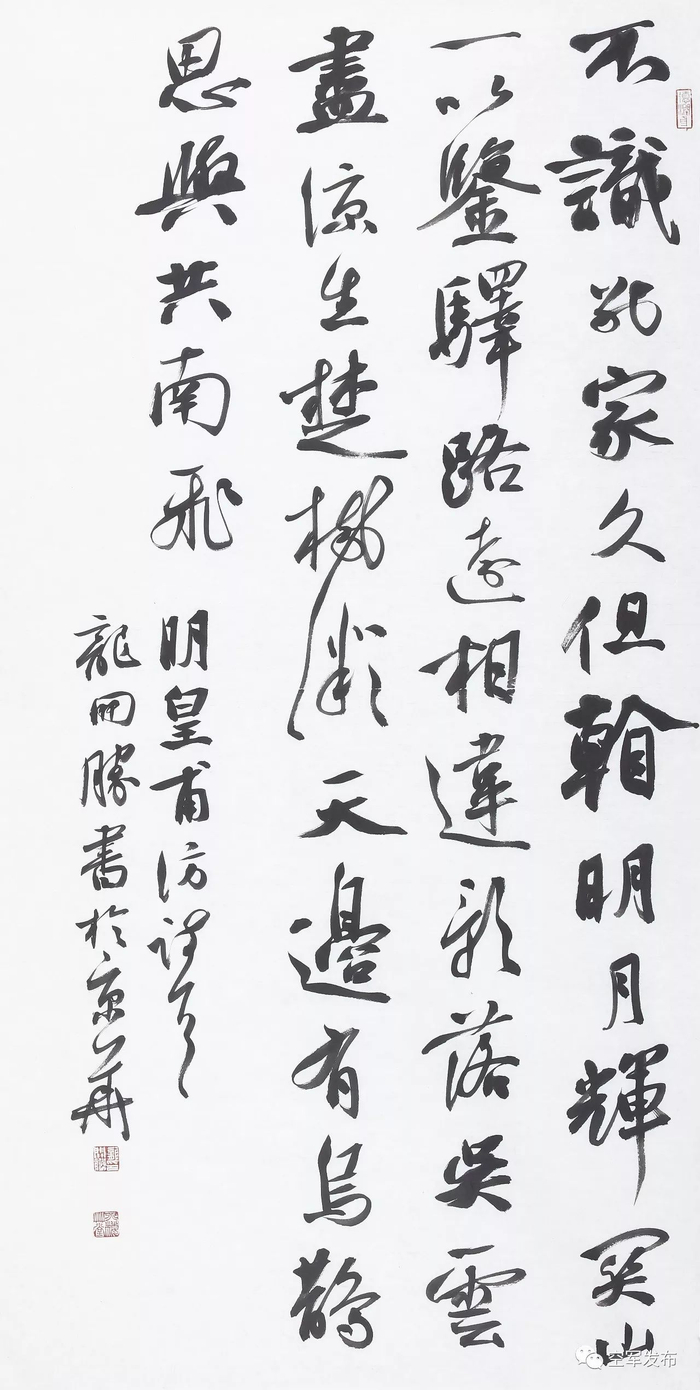 不識別家久但看明月輝關山
一以鑒驛路遠相違影落吳雲
盡涼生楚樹微天邊有烏鵲
思與共南飛
明皇甫汸詩
龍開勝書於京華
空军发布